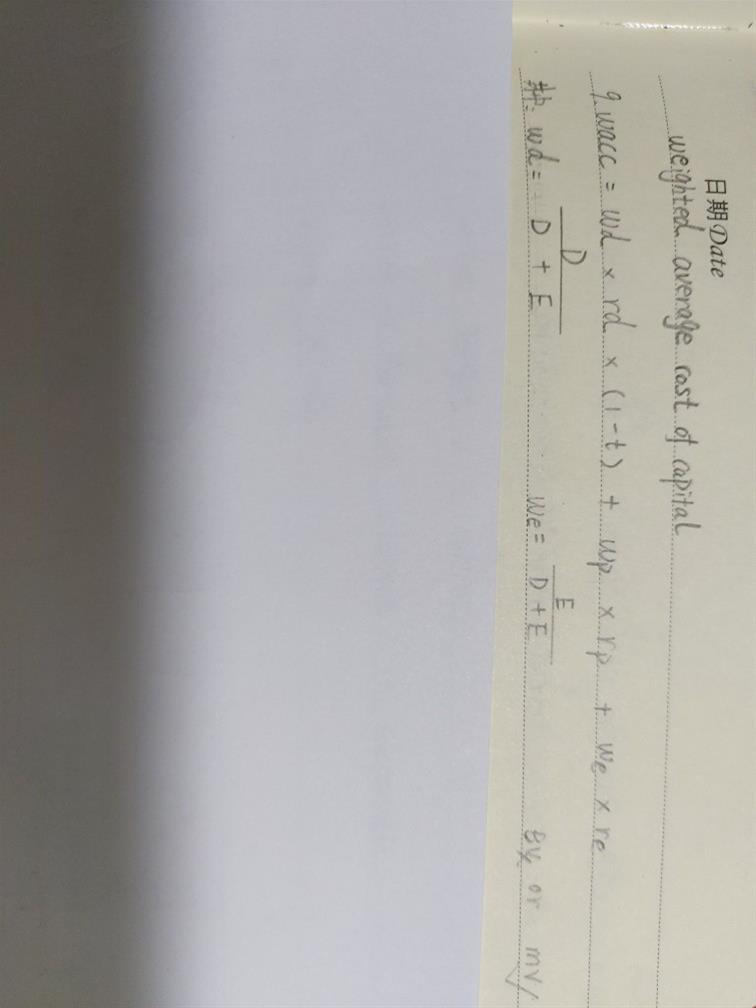 日期 Date
weighted average cost of capital
9. wacc = wd × rd × (1-t) + wp × rp + we × re
其中. wd = D / D + E we = E / D + E BV× or mv√